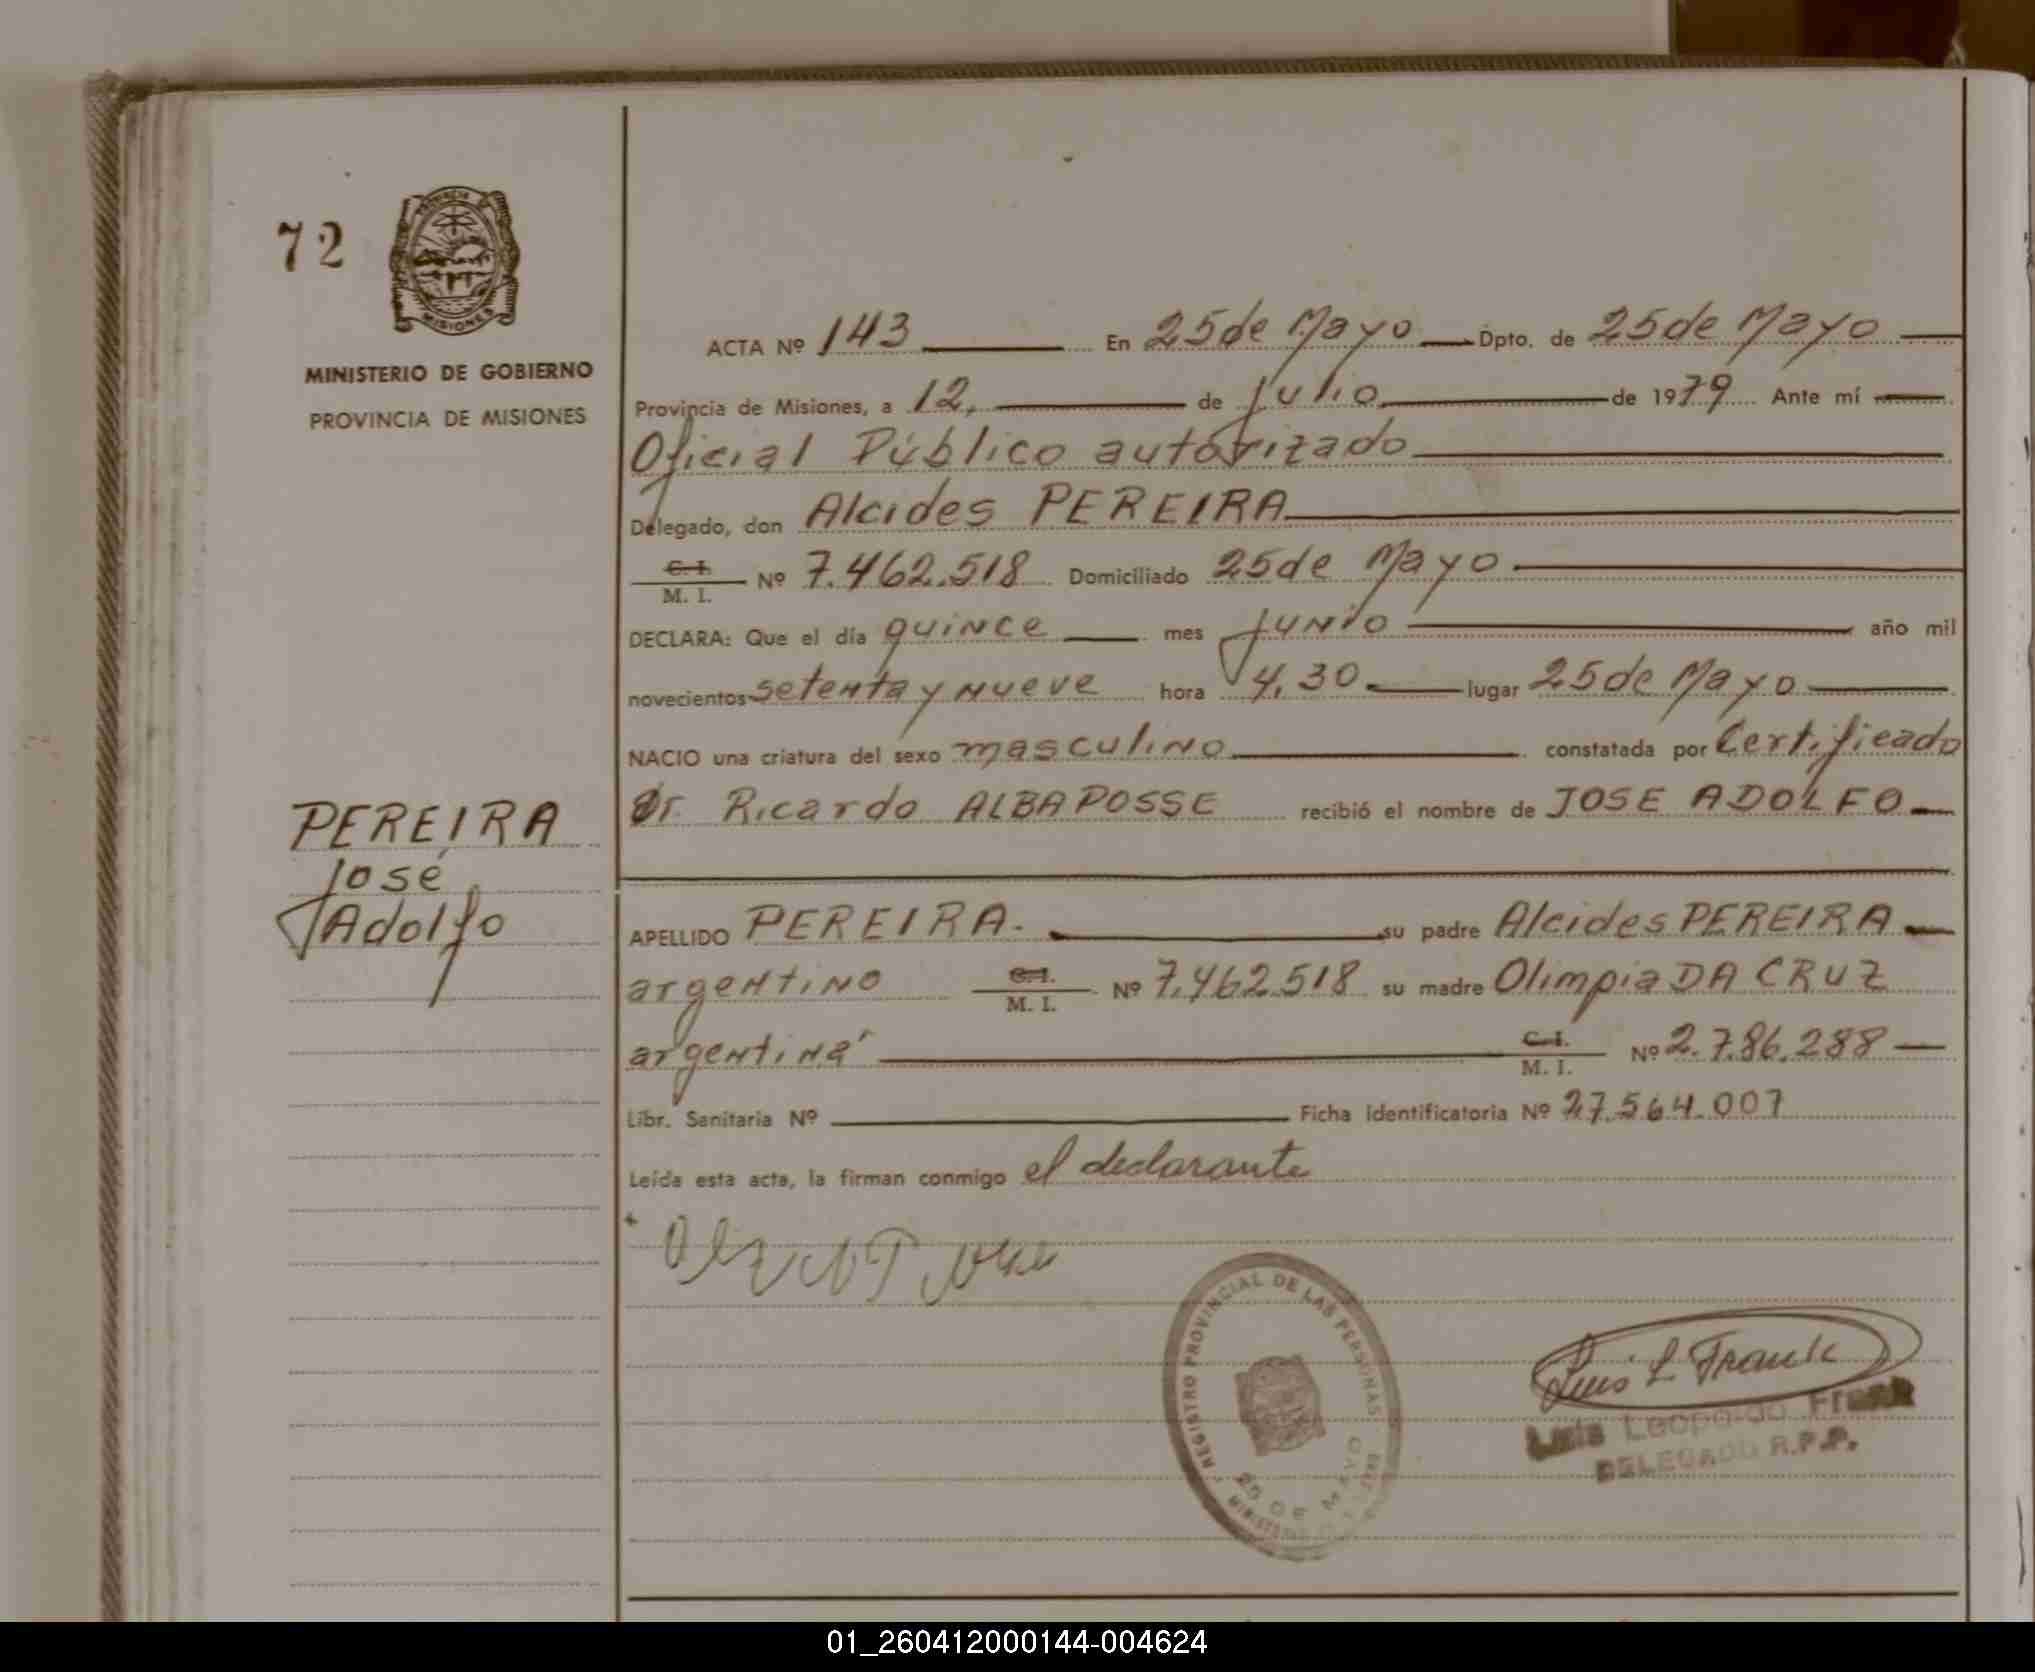 72
MISIONES
MINISTERIO DE GOBIERNO
PROVINCIA DE MISIONES
PEREIRA
José
Adolfo
ACTA Nº 143 En 25 de Mayo Dpto. de 25 de Mayo
Provincia de Misiones, a 12, de julio de 1979 Ante mí
Oficial Público autorizado
Delegado, don Alcides PEREIRA
C. I. M. I. Nº 7.462.518 Domiciliado 25 de Mayo
DECLARA: Que el día quince mes junio año mil
novecientos setenta y nueve hora 4,30 lugar 25 de Mayo
NACIO una criatura del sexo masculino constatada por Certificado
Dr. Ricardo ALBA POSSE recibió el nombre de JOSE ADOLFO
APELLIDO PEREIRA. su padre Alcides PEREIRA
argentino C. I. M. I. Nº 7.462.518 su madre Olimpia DA CRUZ
argentina C. I. M. I. Nº 2.786.288
Libr. Sanitaria Nº Ficha identificatoria Nº 27.564.007
Leída esta acta, la firman conmigo el declarante
REGISTRO PROVINCIAL DE LAS PERSONAS
25 DE MAYO
Luis L Frank
Luis Leopoldo Frank
DELEGADO R.P.P.
01_260412000144-004624